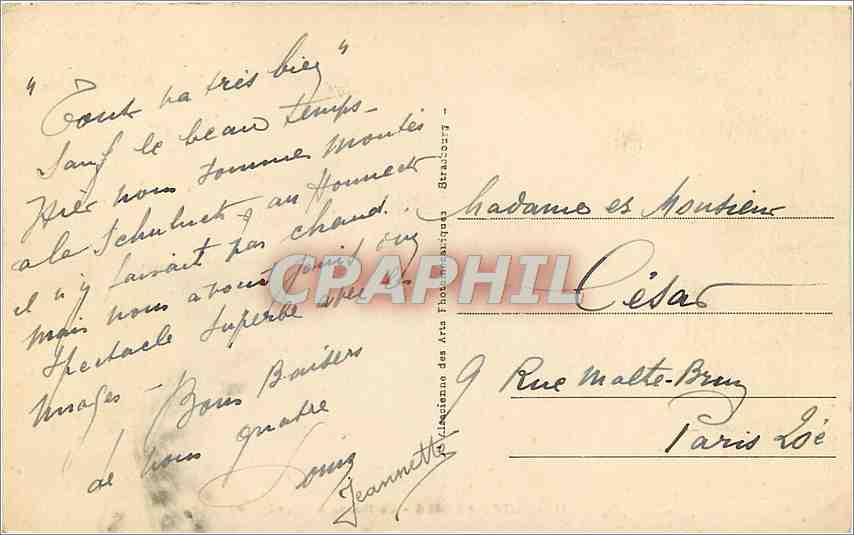 " Tout va très bien "
sauf le beau temps -
Hier nous sommes montés
à la Schulucht & au Honneck
il n'y faisait pas chaud.
mais nous avons joui d'un
spectacle superbe avec les
nuages - Bons Baisers
de nous quatre
Louis
Jeannette
Alsacienne des Arts Photomécaniques Strasbourg -
Madame et Monsieur
César
9 Rue Malte-Brun
Paris 20è
CPAPHIL